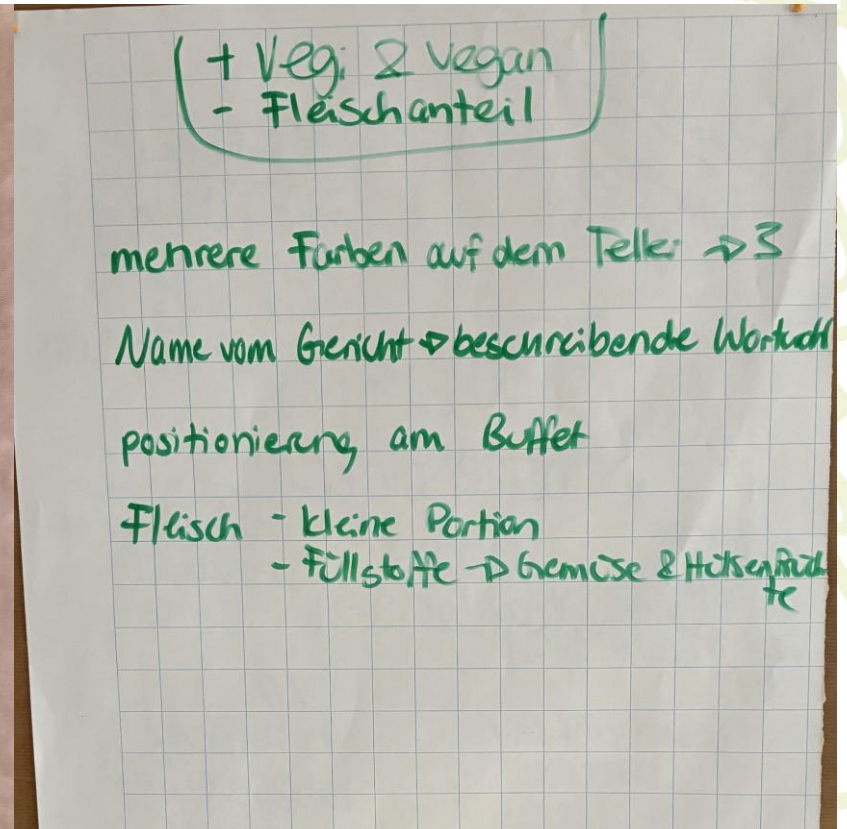 + Veg. & vegan
- Fleischanteil
mehrere Farben auf dem Teller → 3
Name vom Gericht → beschreibende Wortwahl
positionierung am Buffet
Fleisch - kleine Portion
- Füllstoffe → Gemüse & Hülsenfrüch
te